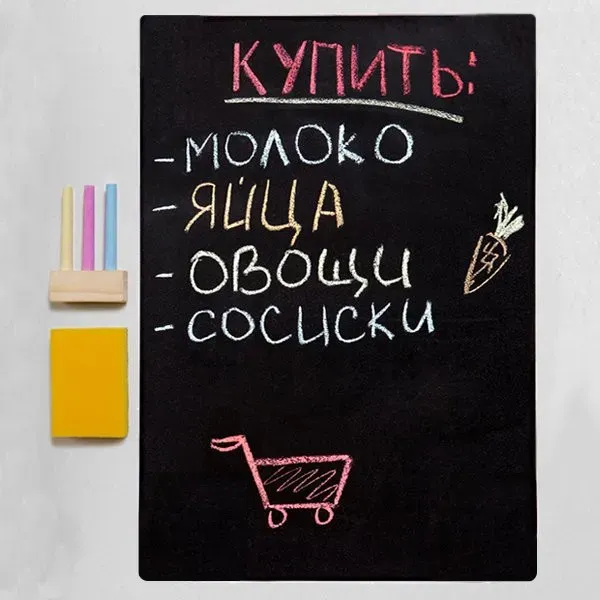 КУПИТЬ:
-МОЛОКО
-ЯЙЦА
-ОВОЩИ
-СОСИСКИ